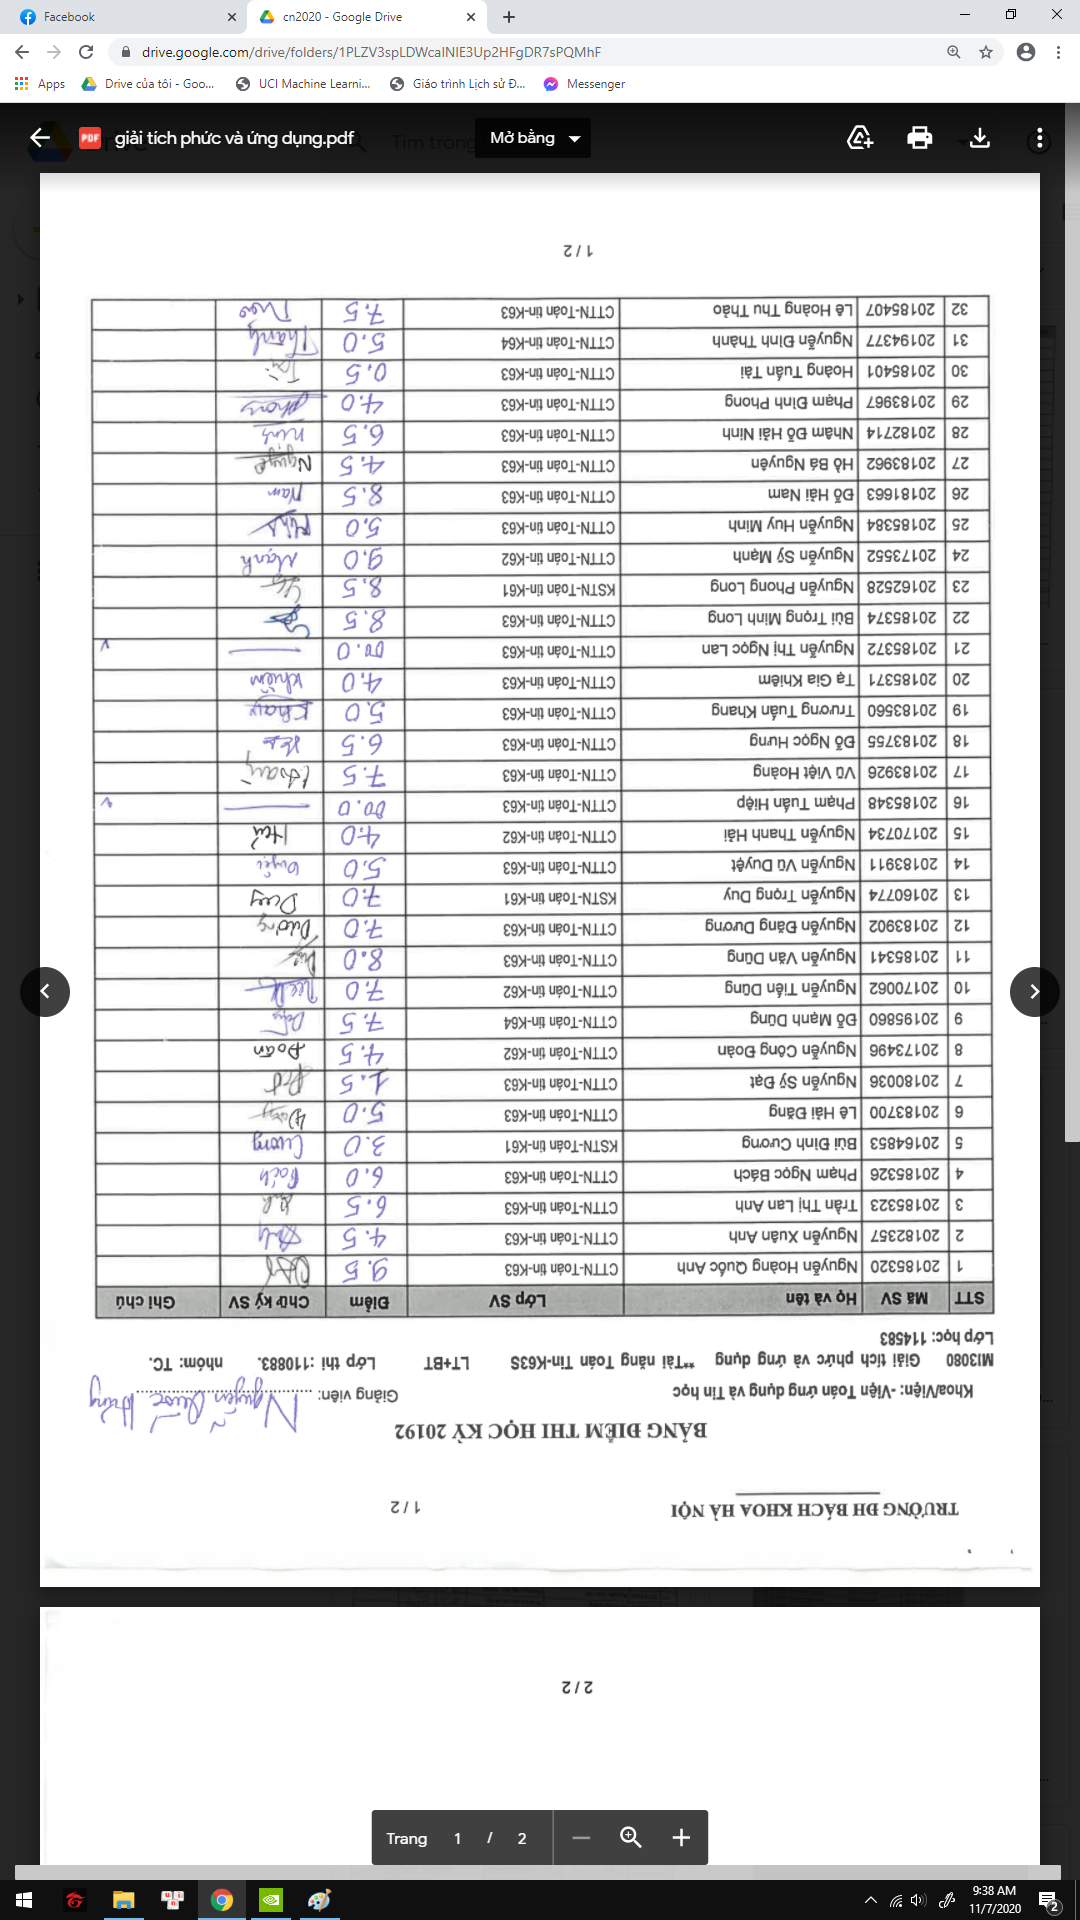 Facebook
cn2020 - Google Drive
drive.google.com/drive/folders/1PLZV3spLDWcaINIE3Up2HFgDR7sPQMhF
Apps Drive của tôi - Goo... UCI Machine Learni... Giáo trình Lịch sử Đ... Messenger
PDF giải tích phức và ứng dụng.pdf Tìm trong Mở bằng
TRƯỜNG ĐH BÁCH KHOA HÀ NỘI 1 / 2
BẢNG ĐIỂM THI HỌC KỲ 20192
Khoa/Viện: -Viện Toán ứng dụng và Tin học Giảng viên: Nguyễn Quốc Hưng
MI3080 Giải tích phức và ứng dụng **Tài năng Toán Tin-K63S LT+BT Lớp thi :110883. nhóm: TC.
Lớp học: 114583
STT Mã SV Họ và tên Lớp SV Điểm Chữ ký SV Ghi chú
1 20185320 Nguyễn Hoàng Quốc Anh CTTN-Toán tin-K63 9.5
2 20182357 Nguyễn Xuân Anh CTTN-Toán tin-K63 4.5
3 20185323 Trần Thị Lan Anh CTTN-Toán tin-K63 6.5
4 20185326 Phạm Ngọc Bách CTTN-Toán tin-K63 6.0 Bách
5 20164853 Bùi Đình Cương KSTN-Toán tin-K61 3.0 Cương
6 20183700 Lê Hải Đăng CTTN-Toán tin-K63 5.0
7 20180036 Nguyễn Sỹ Đạt CTTN-Toán tin-K63 1.5
8 20173496 Nguyễn Công Đoàn CTTN-Toán tin-K62 4.5 Đoàn
9 20195860 Đỗ Mạnh Dũng CTTN-Toán tin-K64 7.5
10 20170062 Nguyễn Tiến Dũng CTTN-Toán tin-K62 7.0
11 20185341 Nguyễn Văn Dũng CTTN-Toán tin-K63 8.0
12 20183902 Nguyễn Đăng Dương CTTN-Toán tin-K63 7.0 Dương
13 20160774 Nguyễn Trọng Duy KSTN-Toán tin-K61 7.0 Duy
14 20183911 Nguyễn Vũ Duyệt CTTN-Toán tin-K63 5.0 Duyệt
15 20170734 Nguyễn Thanh Hải CTTN-Toán tin-K62 4.0 Hải
16 20185348 Phạm Tuấn Hiệp CTTN-Toán tin-K63 00.0 v
17 20183926 Vũ Việt Hoàng CTTN-Toán tin-K63 7.5 Hoàng
18 20183755 Đỗ Ngọc Hưng CTTN-Toán tin-K63 6.5
19 20183560 Trương Tuấn Khang CTTN-Toán tin-K63 5.0 Khang
20 20185371 Tạ Gia Khiêm CTTN-Toán tin-K63 4.0 Khiêm
21 20185372 Nguyễn Thị Ngọc Lan CTTN-Toán tin-K63 00.0 v
22 20185374 Bùi Trọng Minh Long CTTN-Toán tin-K63 8.5
23 20162528 Nguyễn Phong Long KSTN-Toán tin-K61 8.5
24 20173552 Nguyễn Sỹ Mạnh CTTN-Toán tin-K62 9.0 Mạnh
25 20185384 Nguyễn Huy Minh CTTN-Toán tin-K63 5.0
26 20181663 Đỗ Hải Nam CTTN-Toán tin-K63 8.5 Nam
27 20183962 Hồ Bá Nguyên CTTN-Toán tin-K63 4.5
28 20182714 Nhâm Đỗ Hải Ninh CTTN-Toán tin-K63 6.5 Ninh
29 20183967 Phạm Đình Phong CTTN-Toán tin-K63 4.0 Phong
30 20185401 Hoàng Tuấn Tài CTTN-Toán tin-K63 0.5 Tài
31 20194377 Nguyễn Đình Thành CTTN-Toán tin-K64 5.0 Thành
32 20185407 Lê Hoàng Thu Thảo CTTN-Toán tin-K63 7.5 Thảo
1 / 2
2 / 2
Trang 1 / 2
9:38 AM
11/7/2020
2